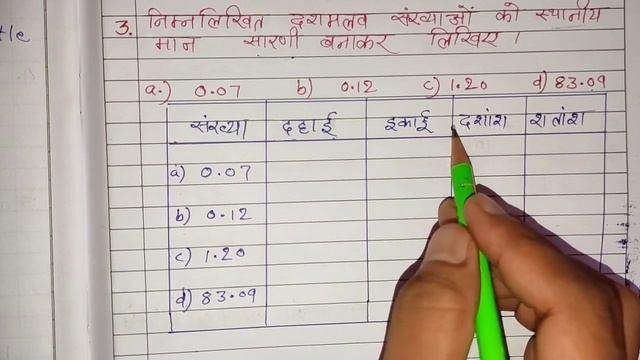 3. निम्नलिखित दशमलव संख्याओं को स्थानीय
मान सारणी बनाकर लिखिए।
a.) 0.07 b) 0.12 c) 1.20 d) 83.09
संख्या दहाई इकाई दशांश शतांश
a) 0.07
b) 0.12
c) 1.20
d) 83.09